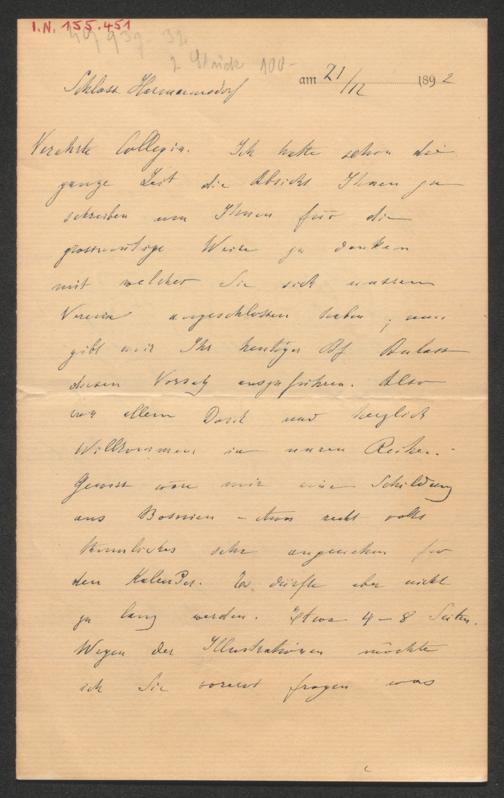 I.N. 155.451
2 Stück 100-
Schloss Harmannsdorf am 21/12 1892
Verehrte Collegin. Ich hatte schon die
ganze Zeit die Absicht Ihnen zu
schreiben um Ihnen für die
grossmütige Weise zu danken
mit welcher Sie sich unserem
Verein angeschlossen haben; nun
gibt mir Ihr heutiger Anlass
diesen Vorsatz auszuführen. Also
vor allem Dank und herzlich
Willkommen in unsern Reihen.-
Gewiss wäre mir eine Schilderung
aus Bosnien - etwas recht volks
thümliches sehr angenehm für
den Kalender. Es dürfte aber nicht
zu lang werden. Etwa 4-8 Seiten.
Wegen der Illustrationen möchte
ich Sie vorerst fragen was